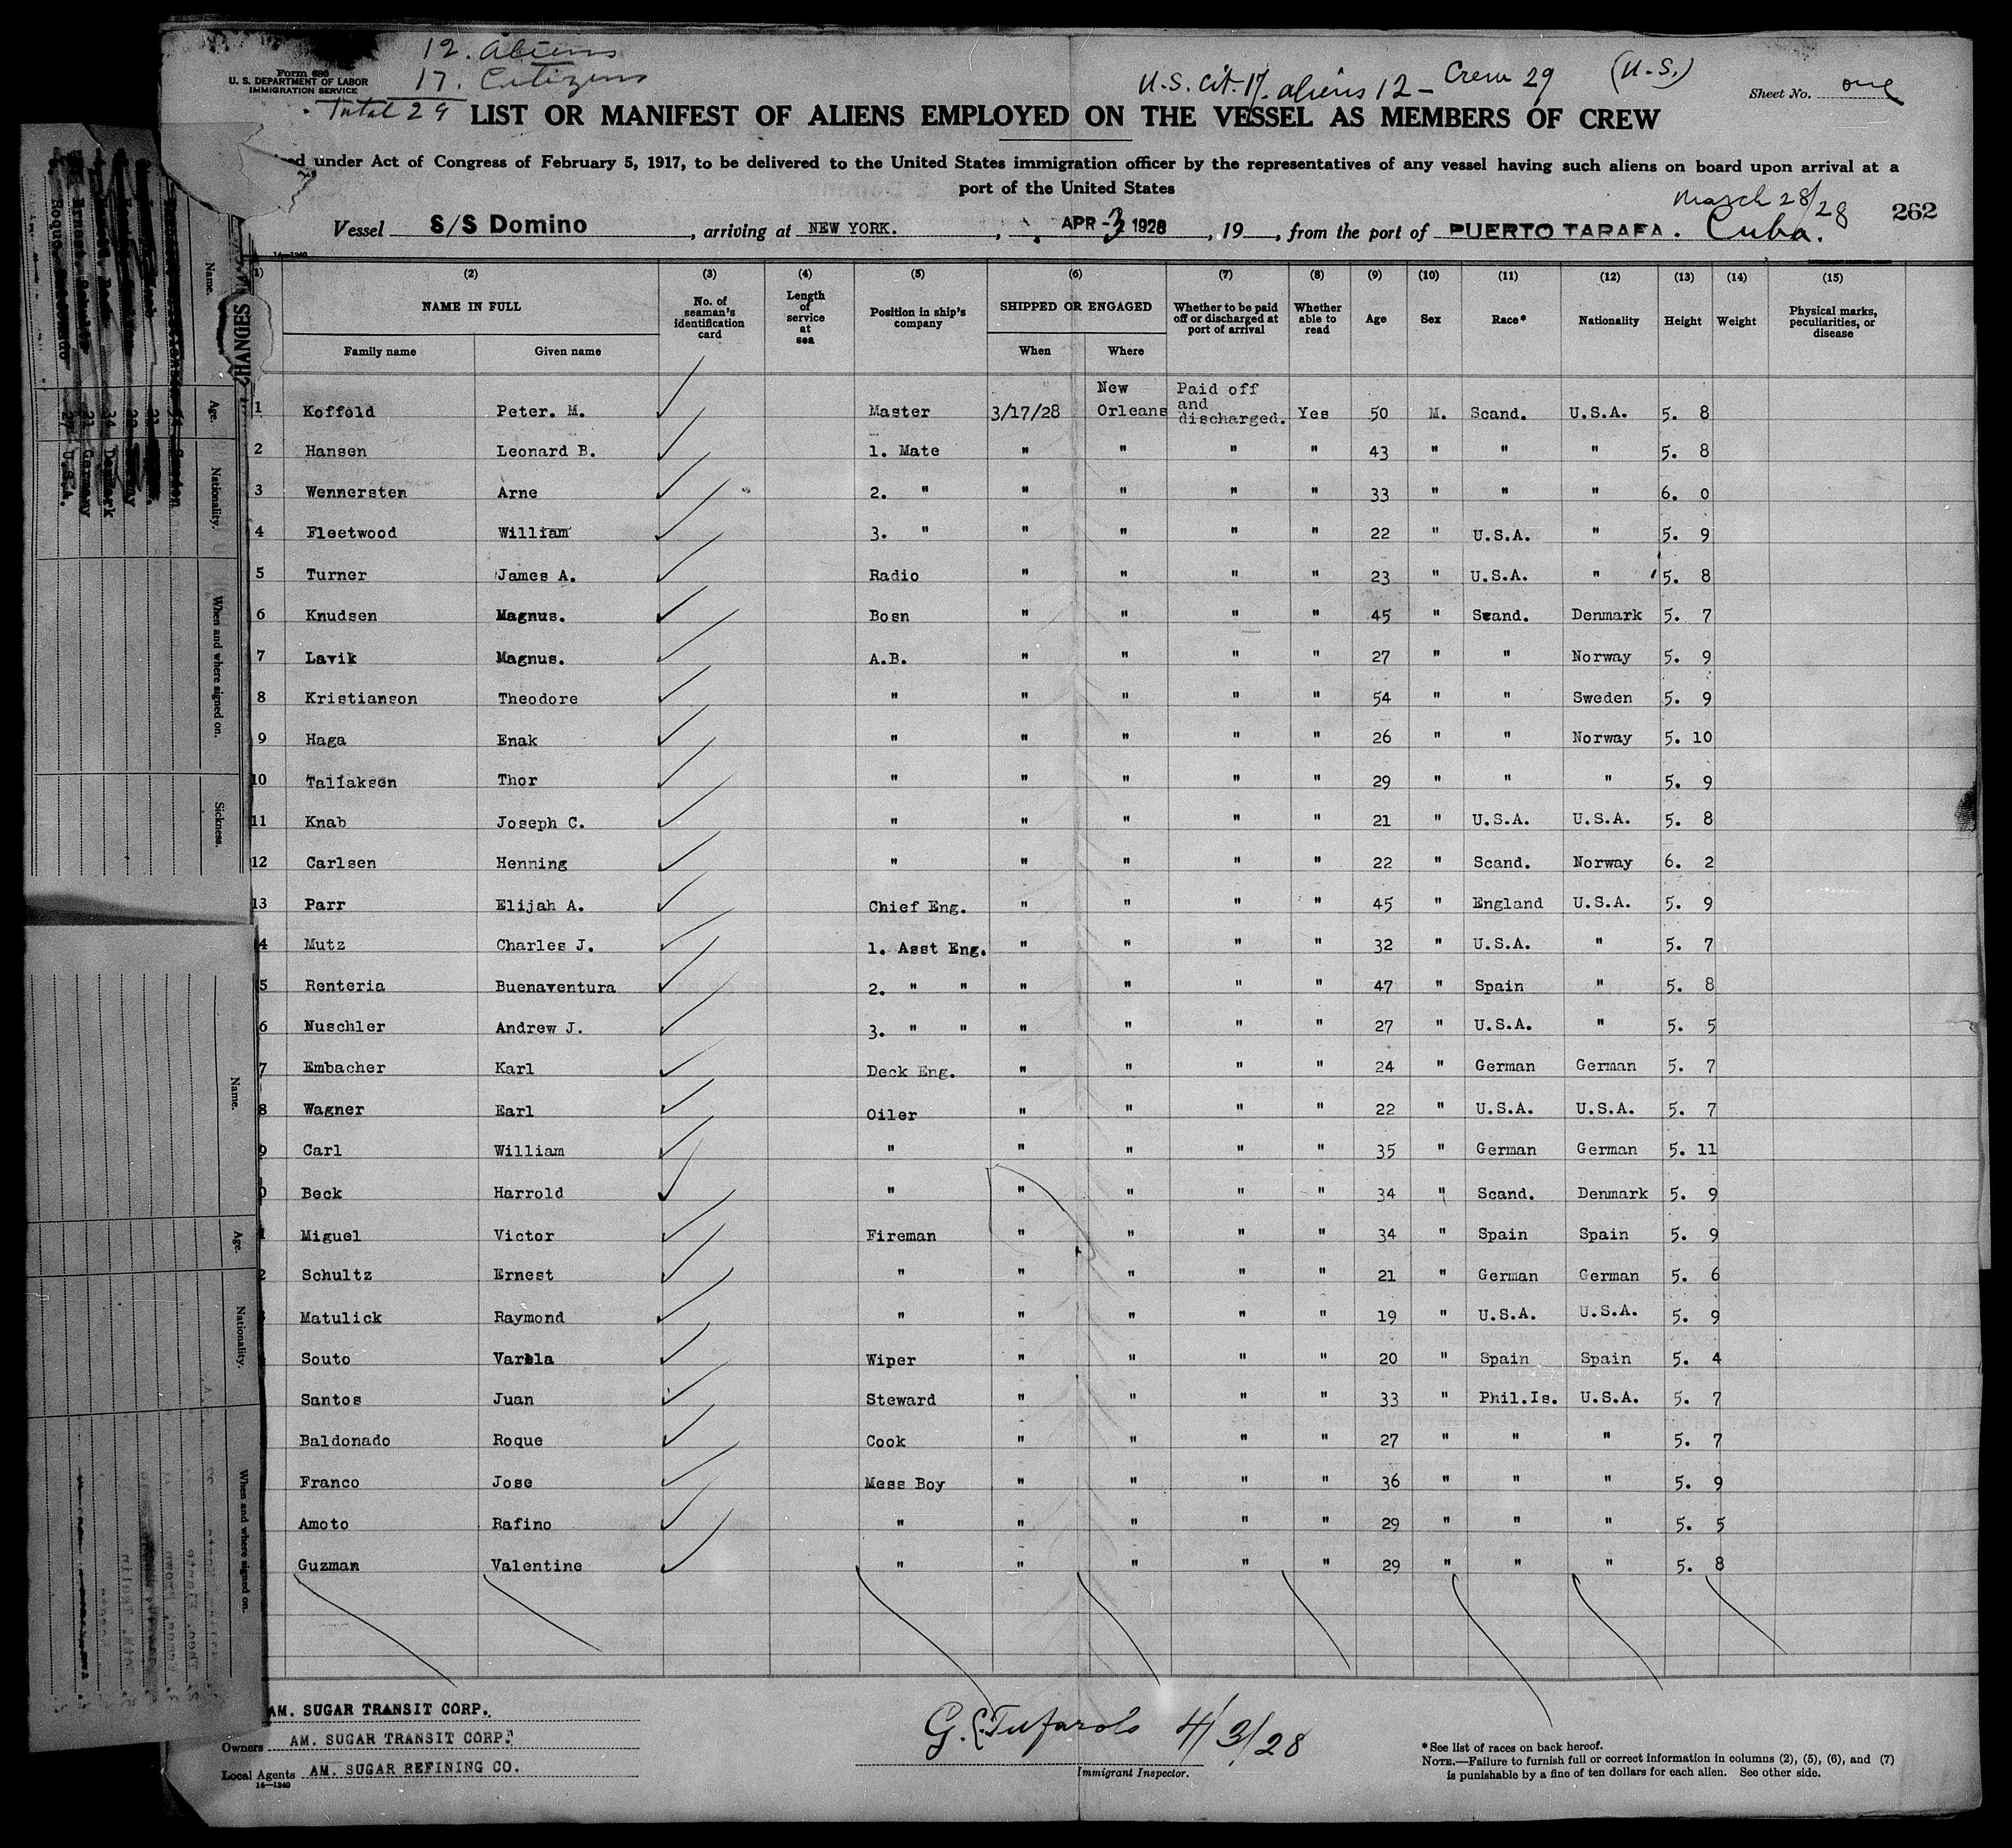 12. aliens
17. Citizens
Total 29
Form 680
U. S. DEPARTMENT OF LABOR
IMMIGRATION SERVICE
U.S. Cit. 17. aliens 12 - Crew 29 (U.S.)
Sheet No. one
LIST OR MANIFEST OF ALIENS EMPLOYED ON THE VESSEL AS MEMBERS OF CREW
under Act of Congress of February 5, 1917, to be delivered to the United States immigration officer by the representatives of any vessel having such aliens on board upon arrival at a
port of the United States
March 28/28
262
Vessel S/S Domino, arriving at NEW YORK., APR -3 1928, 19, from the port of PUERTO TARAFA. Cuba.
14-1240
(1) (2) (3) (4) (5) (6) (7) (8) (9) (10) (11) (12) (13) (14) (15)
NAME IN FULL
Family name Given name
No. of seaman's identification card
Length of service at sea
Position in ship's company
SHIPPED OR ENGAGED
When Where
Whether to be paid off or discharged at port of arrival
Whether able to read
Age Sex Race* Nationality Height Weight
Physical marks, peculiarities, or disease
1 Koffold Peter. M. Master 3/17/28 New Orleans Paid off and discharged. Yes 50 M. Scand. U.S.A. 5. 8
2 Hansen Leonard B. 1. Mate " " " " 43 " " " 5. 8
3 Wennersten Arne 2. " " " " " 33 " " " 6. 0
4 Fleetwood William 3. " " " " " 22 " U.S.A. " 5. 9
5 Turner James A. Radio " " " " 23 " U.S.A. " 5. 8
6 Knudsen Magnus. Bosn " " " " 45 " Scand. Denmark 5. 7
7 Lavik Magnus. A.B. " " " " 27 " " Norway 5. 9
8 Kristianson Theodore " " " " " 54 " " Sweden 5. 9
9 Haga Enak " " " " " 26 " " Norway 5. 10
10 Tallaksen Thor " " " " " 29 " " " 5. 9
11 Knab Joseph C. " " " " " 21 " U.S.A. U.S.A. 5. 8
12 Carlsen Henning " " " " " 22 " Scand. Norway 6. 2
13 Parr Elijah A. Chief Eng. " " " " 45 " England U.S.A. 5. 9
4 Mutz Charles J. 1. Asst Eng. " " " " 32 " U.S.A. " 5. 7
5 Renteria Buenaventura 2. " " " " " " 47 " Spain " 5. 8
6 Nuschler Andrew J. 3. " " " " " " 27 " U.S.A. " 5. 5
7 Embacher Karl Deck Eng. " " " " 24 " German German 5. 7
8 Wagner Earl Oiler " " " " 22 " U.S.A. U.S.A. 5. 7
9 Carl William " " " " " 35 " German German 5. 11
0 Beck Harrold " " " " " 34 " Scand. Denmark 5. 9
1 Miguel Victor Fireman " " " " 34 " Spain Spain 5. 9
2 Schultz Ernest " " " " " 21 " German German 5. 6
Matulick Raymond " " " " " 19 " U.S.A. U.S.A. 5. 9
Souto Varela Wiper " " " " 20 " Spain Spain 5. 4
Santos Juan Steward " " " " 33 " Phil.Is. U.S.A. 5. 7
Baldonado Roque Cook " " " " 27 " " " 5. 7
Franco Jose Mess Boy " " " " 36 " " " 5. 9
Amoto Rafino " " " " " 29 " " " 5. 5
Guzman Valentine " " " " " 29 " " " 5. 8
AM. SUGAR TRANSIT CORP.
Owners AM. SUGAR TRANSIT CORP.
Local Agents AM. SUGAR REFINING CO.
14-1240
4/3/28
Immigrant Inspector.
*See list of races on back hereof.
NOTE.—Failure to furnish full or correct information in columns (2), (5), (6), and (7)
is punishable by a fine of ten dollars for each alien. See other side.
CHANGES
Name. Age. Nationality. When and where signed on. Sickness.
Denmark
Germany
U.S.A.
Name. Age. Nationality. When and where signed on.